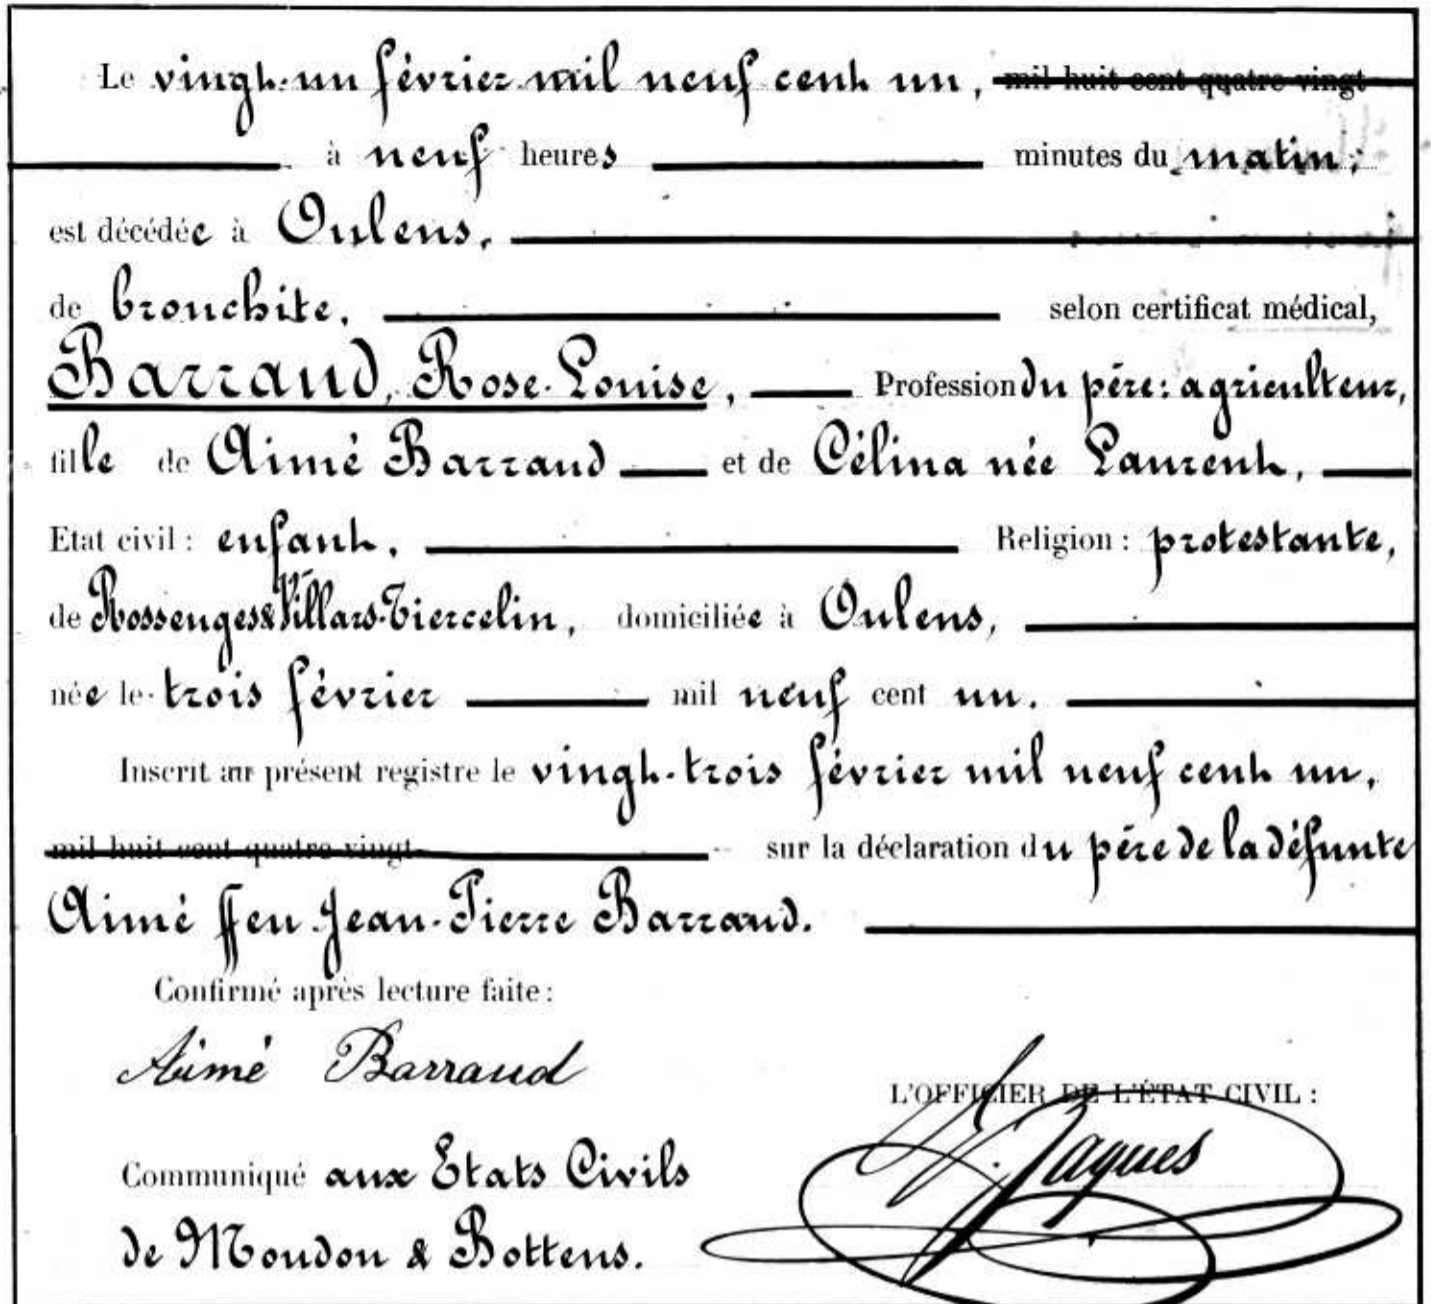 Le vingt-un février mil neuf cent un, mil huit cent quatre vingt
à neuf heures minutes du matin;
est décédée à Oulens,
de bronchite, selon certificat médical,
Barraud, Rose-Louise, Profession du père: agriculteur,
fille de Aimé Barraud et de Célina née Laurent,
Etat civil: enfant, Religion: protestante,
de Rossenges & Villars-Tiercelin, domiciliée à Oulens,
née le trois février mil neuf cent un.
Inscrit au présent registre le vingt-trois février mil neuf cent un,
mil huit cent quatre vingt sur la déclaration du père de la défunte
Aimé ffeu Jean-Pierre Barraud.
Confirmé après lecture faite:
Aimé Barraud
L'OFFICIER DE L'ÉTAT CIVIL:
Jaques
Communiqué aux Etats Civils
de Moudon & Bottens.